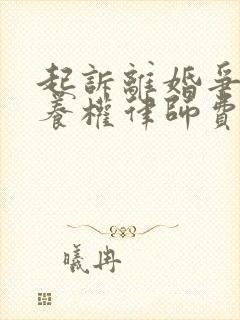 起訴離婚爭
養權律師費
曦冉